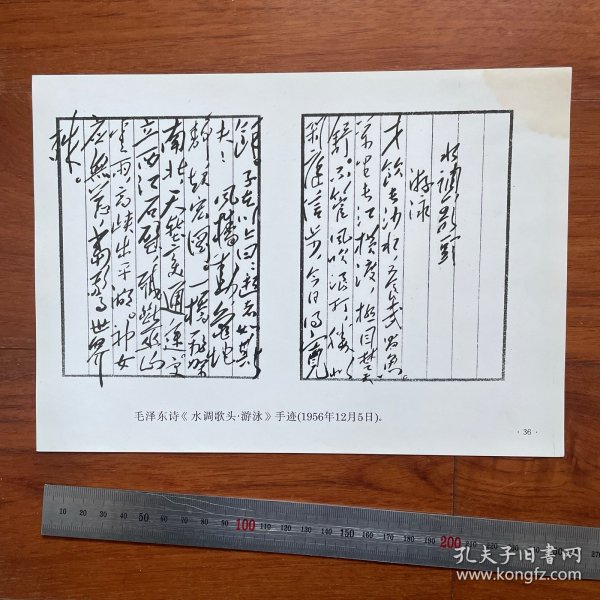 水调歌头
游泳
才飲长沙水，又食武昌魚。
万里长江横渡，极目楚天
舒。不管风吹浪打，胜似
闲庭信步，今日得宽
馀。子在川上曰：逝者如斯
夫！风樯动，龟蛇
静，起宏图。一桥飞架
南北，天堑变通途。更
立西江石壁，截断巫山
云雨，高峡出平湖。神女
应无恙，当惊世界
殊。
毛泽东诗《水调歌头·游泳》手迹(1956年12月5日)。
·36·
10 20 30 40 50 60 70 80 90 100 110 120 130 140 150 160 170 180 190 200
孔夫子旧书网
www.kongfz.com